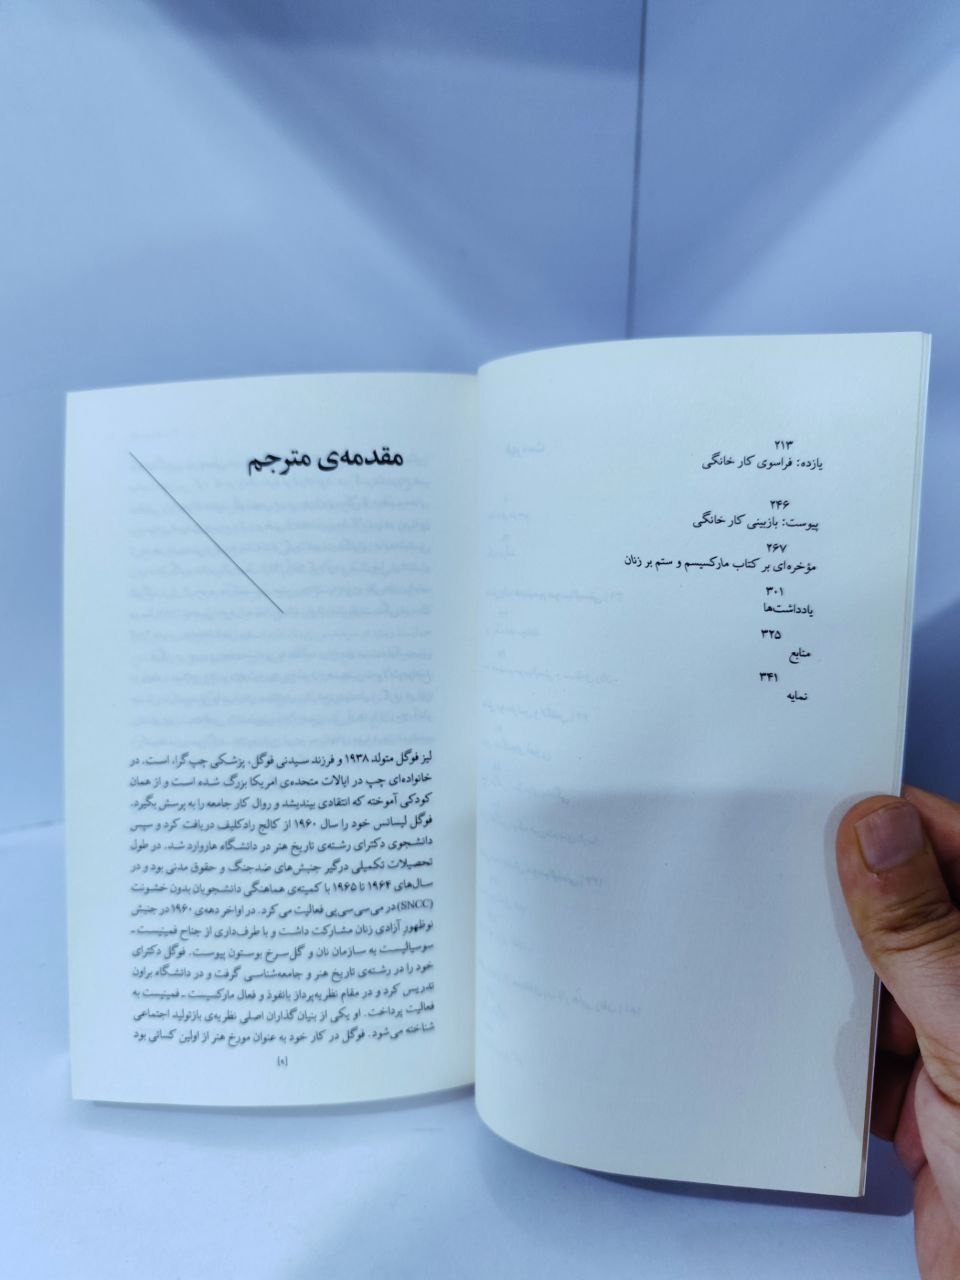 ۲۱۳
یازده: فراسوی کار خانگی
۲۴۶
پیوست: بازبینی کار خانگی
۲۶۷
مؤخره‌ای بر کتاب مارکسیسم و ستم بر زنان
۳۰۱
یادداشت‌ها
۳۲۵
منابع
۳۴۱
نمایه
مقدمه‌ی مترجم
لیز فوگل متولد ۱۹۳۸ و فرزند سیدنی فوگل، پزشکی چپ‌گرا، است. در
خانواده‌ای چپ در ایالات متحده‌ی امریکا بزرگ شده است و از همان
کودکی آموخته که انتقادی بیندیشد و روال کار جامعه را به پرسش بگیرد.
فوگل لیسانس خود را سال ۱۹۶۰ از کالج رادکلیف دریافت کرد و سپس
دانشجوی دکترای رشته‌ی تاریخ هنر در دانشگاه هاروارد شد. در طول
تحصیلات تکمیلی درگیر جنبش‌های ضدجنگ و حقوق مدنی بود و در
سال‌های ۱۹۶۴ تا ۱۹۶۵ با کمیته‌ی هماهنگی دانشجویان بدون خشونت
(SNCC) در می‌سی‌سی‌پی فعالیت می‌کرد. در اواخر دهه‌ی ۱۹۶۰ در جنبش
نوظهورِ آزادی زنان مشارکت داشت و با طرف‌داری از جناح فمینیست ـ
سوسیالیست به سازمان نان و گل‌سرخ بوستون پیوست. فوگل دکترای
خود را در رشته‌ی تاریخ هنر و جامعه‌شناسی گرفت و در دانشگاه براون
تدریس کرد و در مقام نظریه‌پرداز بانفوذ و فعال مارکسیست ـ فمینیست به
فعالیت پرداخت. او یکی از بنیان‌گذاران اصلی نظریه‌ی بازتولید اجتماعی
شناخته می‌شود. فوگل در کار خود به عنوان مورخ هنر از اولین کسانی بود
[۸]